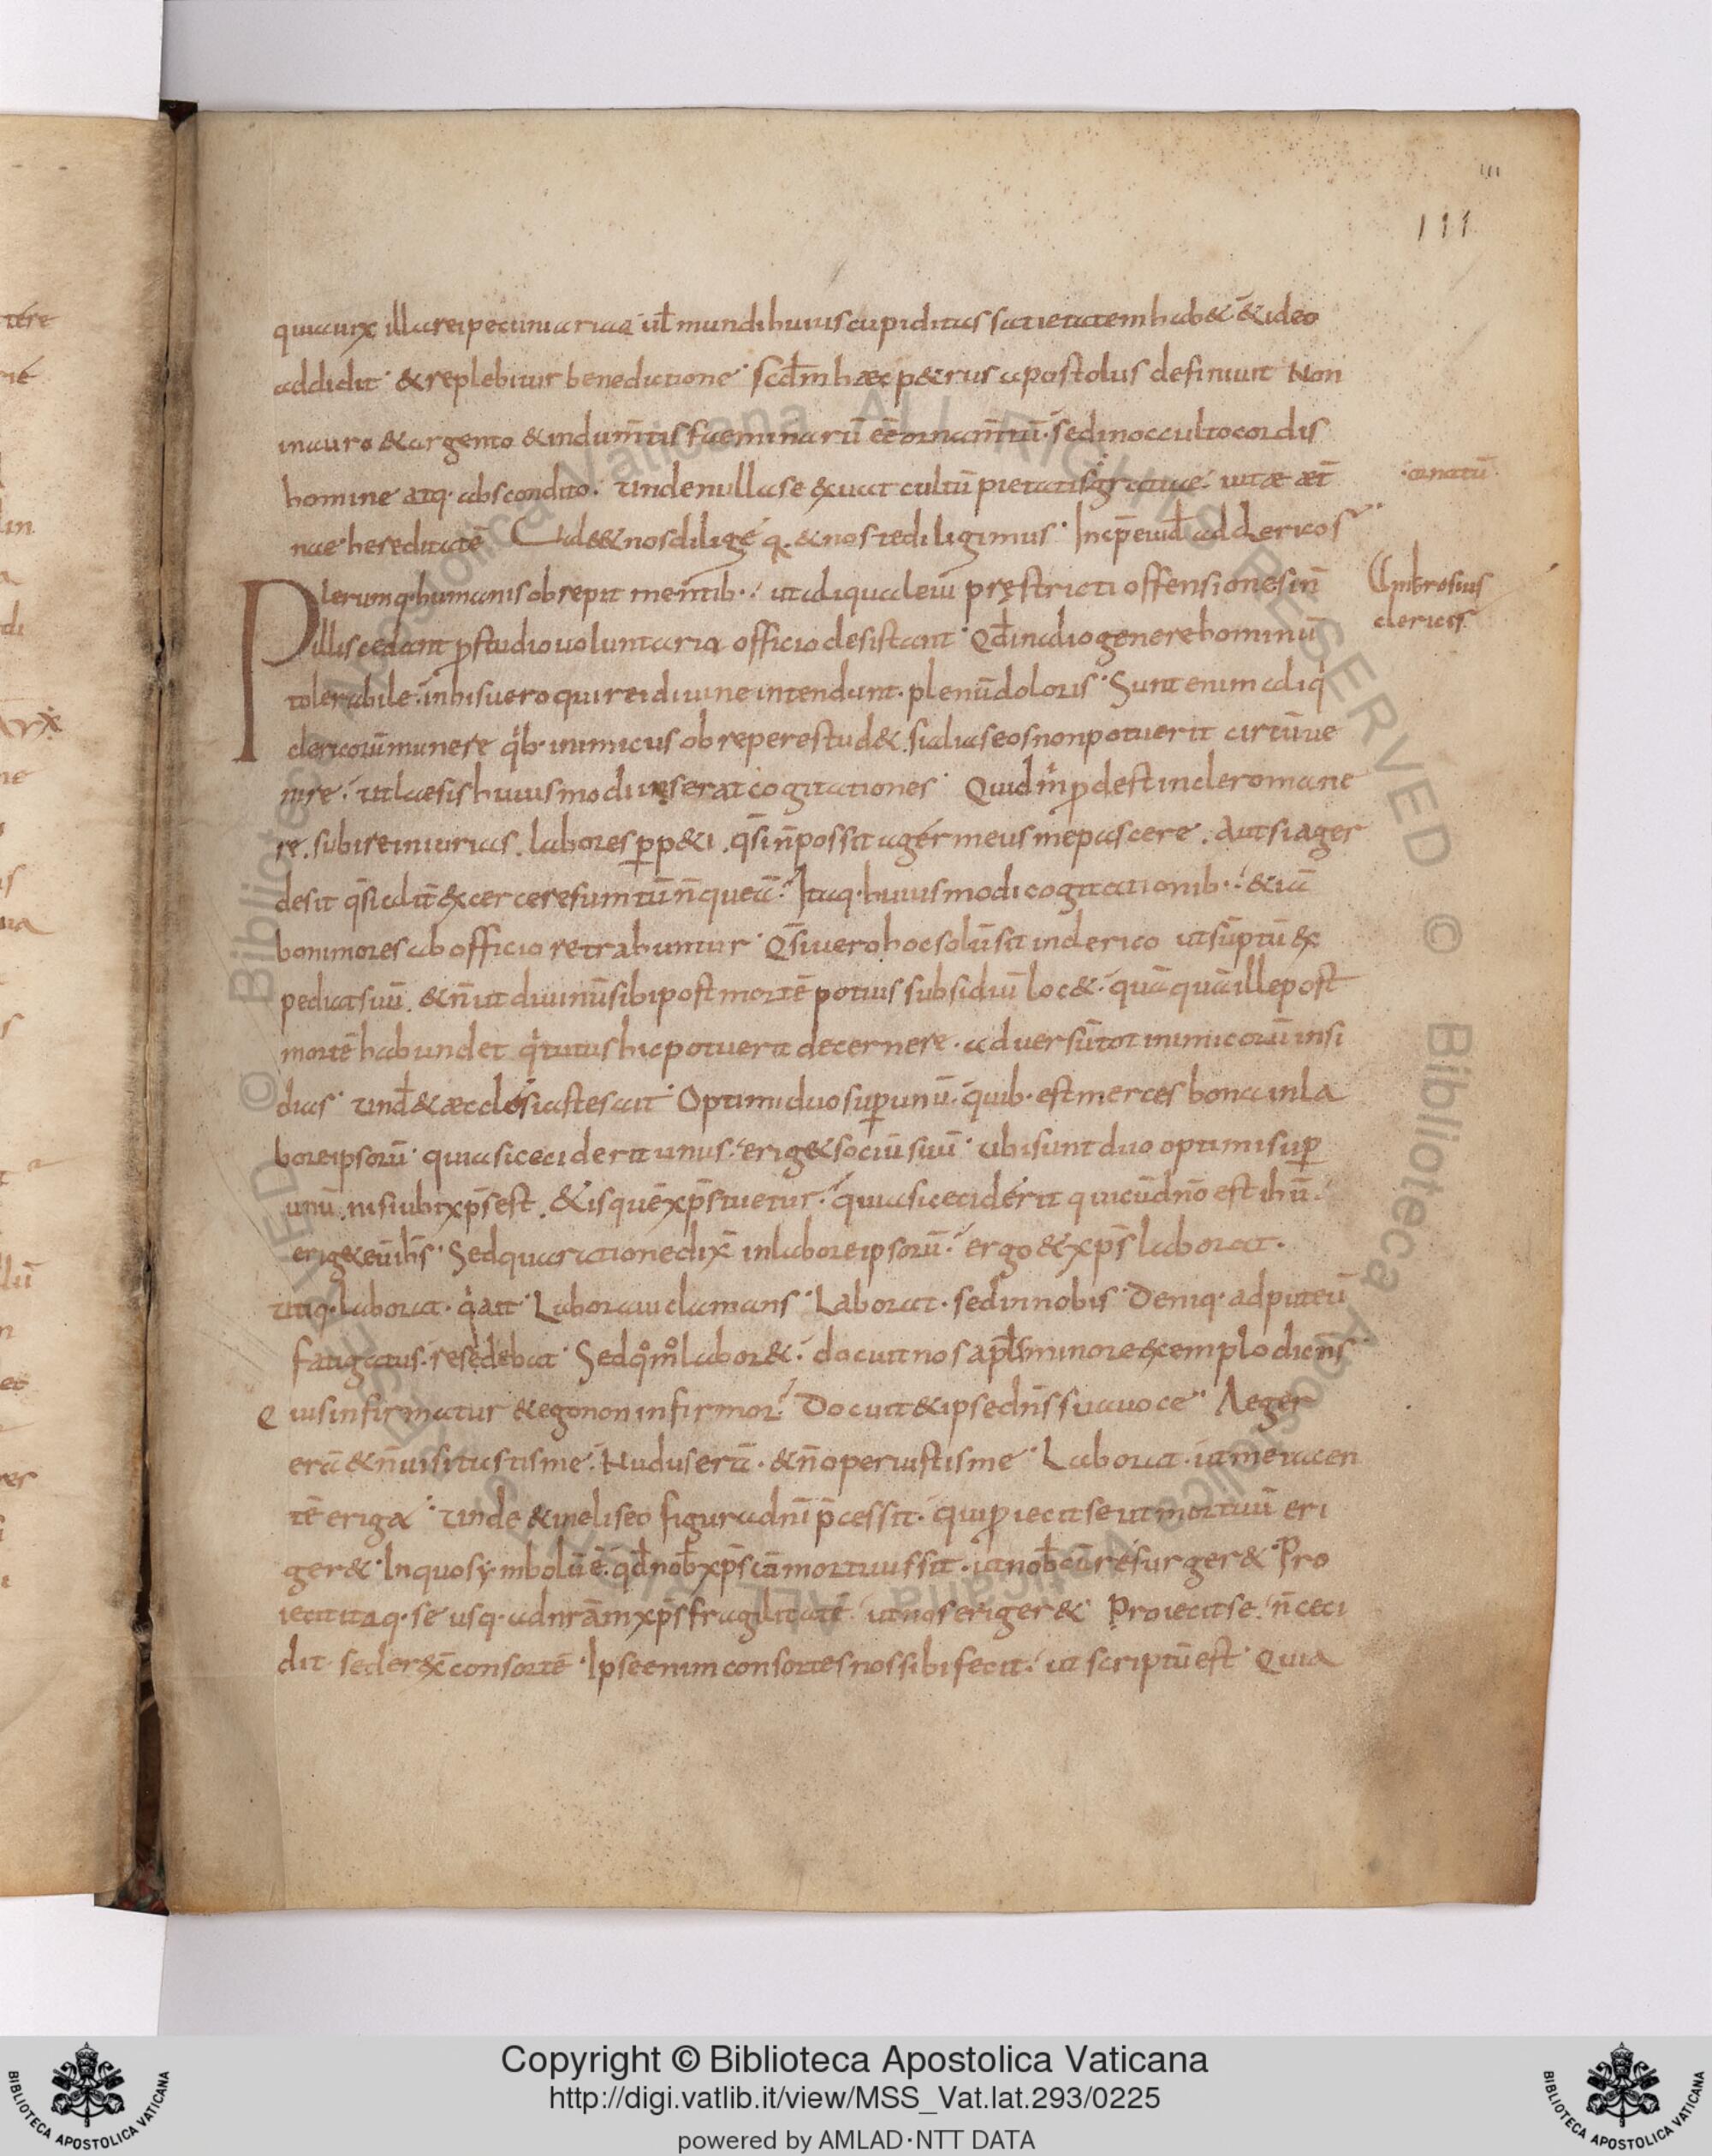 111
quia uix illa rei pecuniariae ul̄ mundi huius cupiditas satietatem hab& & ideo
addidit & replebitur benedictione scd̄m hæc p&rus apostolus definiuit Non
in auro & argento & indum̄tis faeminarū eē ornam̄tū sed in occulto cordis
ornatū
homine atq· abscondito. unde nulla se exuat cultū pietatis gratiae uitæ æt̄
nae hereditatē Uale & nos dilige q· & nos te diligimus Incp̄ eiusd̄ ad clericos
Plerumq· humanis obrepit mentib· ut aliqua leui pręstricti offensione si n̄
Ambrosius
clericis
illis cedant p̄ studio uoluntaria officio desistant Qd̄ in alio genere hominū
tolerabile in his uero qui rei diuine intendunt plenū doloris Sunt enim aliq
clericorū munere qib· inimicus obrepere stud& si alias eos non potuerit circūue
nire ut laesis huiusmodi inserat cogitationes Quid m̄ p̄dest in clero mane
re. subire iniurias. labores p̄p&i. q̄si n̄ possit ager meus me pascere. Aut si ager
desit q̄si alit̄ excercere sumtū n̄ queā Itaq· huiusmodi cogitationib· & iā
boni mores ab officio retrahuntur Q̄si uero hoc solū sit in clerico ut sūptū ex
pediat suū. & n̄ ut diuinū sibi post mortē potius subsidiū loc& quā quā ille post
mortē habundet q̇ tutus hic potuerit decernere aduersū tot inimicorū insi
dias und̄ & æcclesiastes ait Optimi duo sup unū quib· est merces bona in la
bore ipsorū quia si ceciderit unus erig& sociū suū ubi sunt duo optimi sup
unū nisi ubi xp̄s est. & is quē xp̄s tuetur quia si ceciderit qui cū dn̄o est ih̄u
erig& eū ih̄s Sed qua ratione dix̄ in labore ipsorū ergo & xp̄s laborat.
utiq· laborat q̇ ait Laboraui clamans Laborat sed in nobis Deniq· ad puteū
fatigatus resedebat Sed qo͞mo labor& docuit nos apl̄s minore exemplo dicens
Quis infirmatur & ego non infirmor Docuit & ipse dn̄s sua uoce Aeger
erā & n̄ uisitastis me Nudus erā & n̄ operuistis me Laborat ut me iacen
tē eriga Unde & in eliseo figura dn̄i p̄cessit qui p̄iecit se ut mortuū eri
ger& In quo symbolū ē qd̄ nob̄ xp̄s cōmortuus sit ut nob̄ cū resurger& Pro
iecit itaq· se usq· ad nr̄am xp̄s fragilitatē ut nos eriger& Proiecit se n̄ ceci
dit sed erex̄ consortē Ipse enim consortes nos sibi fecit ut scriptū est Quia
Copyright © Biblioteca Apostolica Vaticana
http://digi.vatlib.it/view/MSS_Vat.lat.293/0225
powered by AMLAD·NTT DATA
BIBLIOTECA APOSTOLICA VATICANA
BIBLIOTECA APOSTOLICA VATICANA